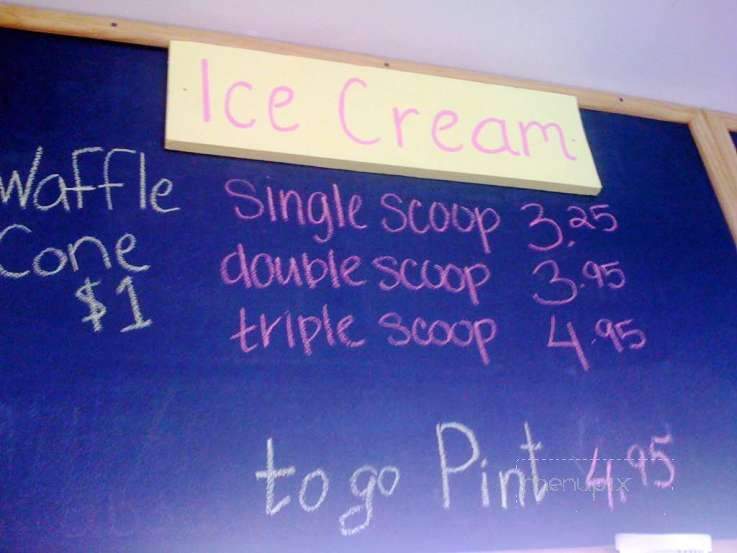 Ice Cream
Waffle
Cone
$1
single scoop 3.25
double scoop 3.95
triple scoop 4.95
to go Pint 4.95
menupix